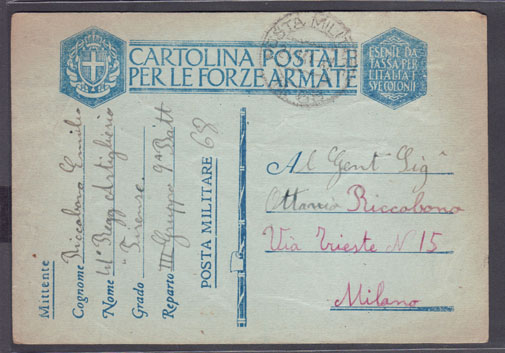 CARTOLINA POSTALE
PER LE FORZE ARMATE
POSTA MILIT
ESENTE DA
TASSA PER
L'ITALIA E
SUE COLONIE
Mittente
Cognome Riccobono Emilio
Nome 41° Regg Artiglieria
Grado "Firenze"
Reparto III Gruppo 9ª Batt
POSTA MILITARE 68
Al Gent Sigr
Ottavio Riccobono
Via Trieste N 15
Milano